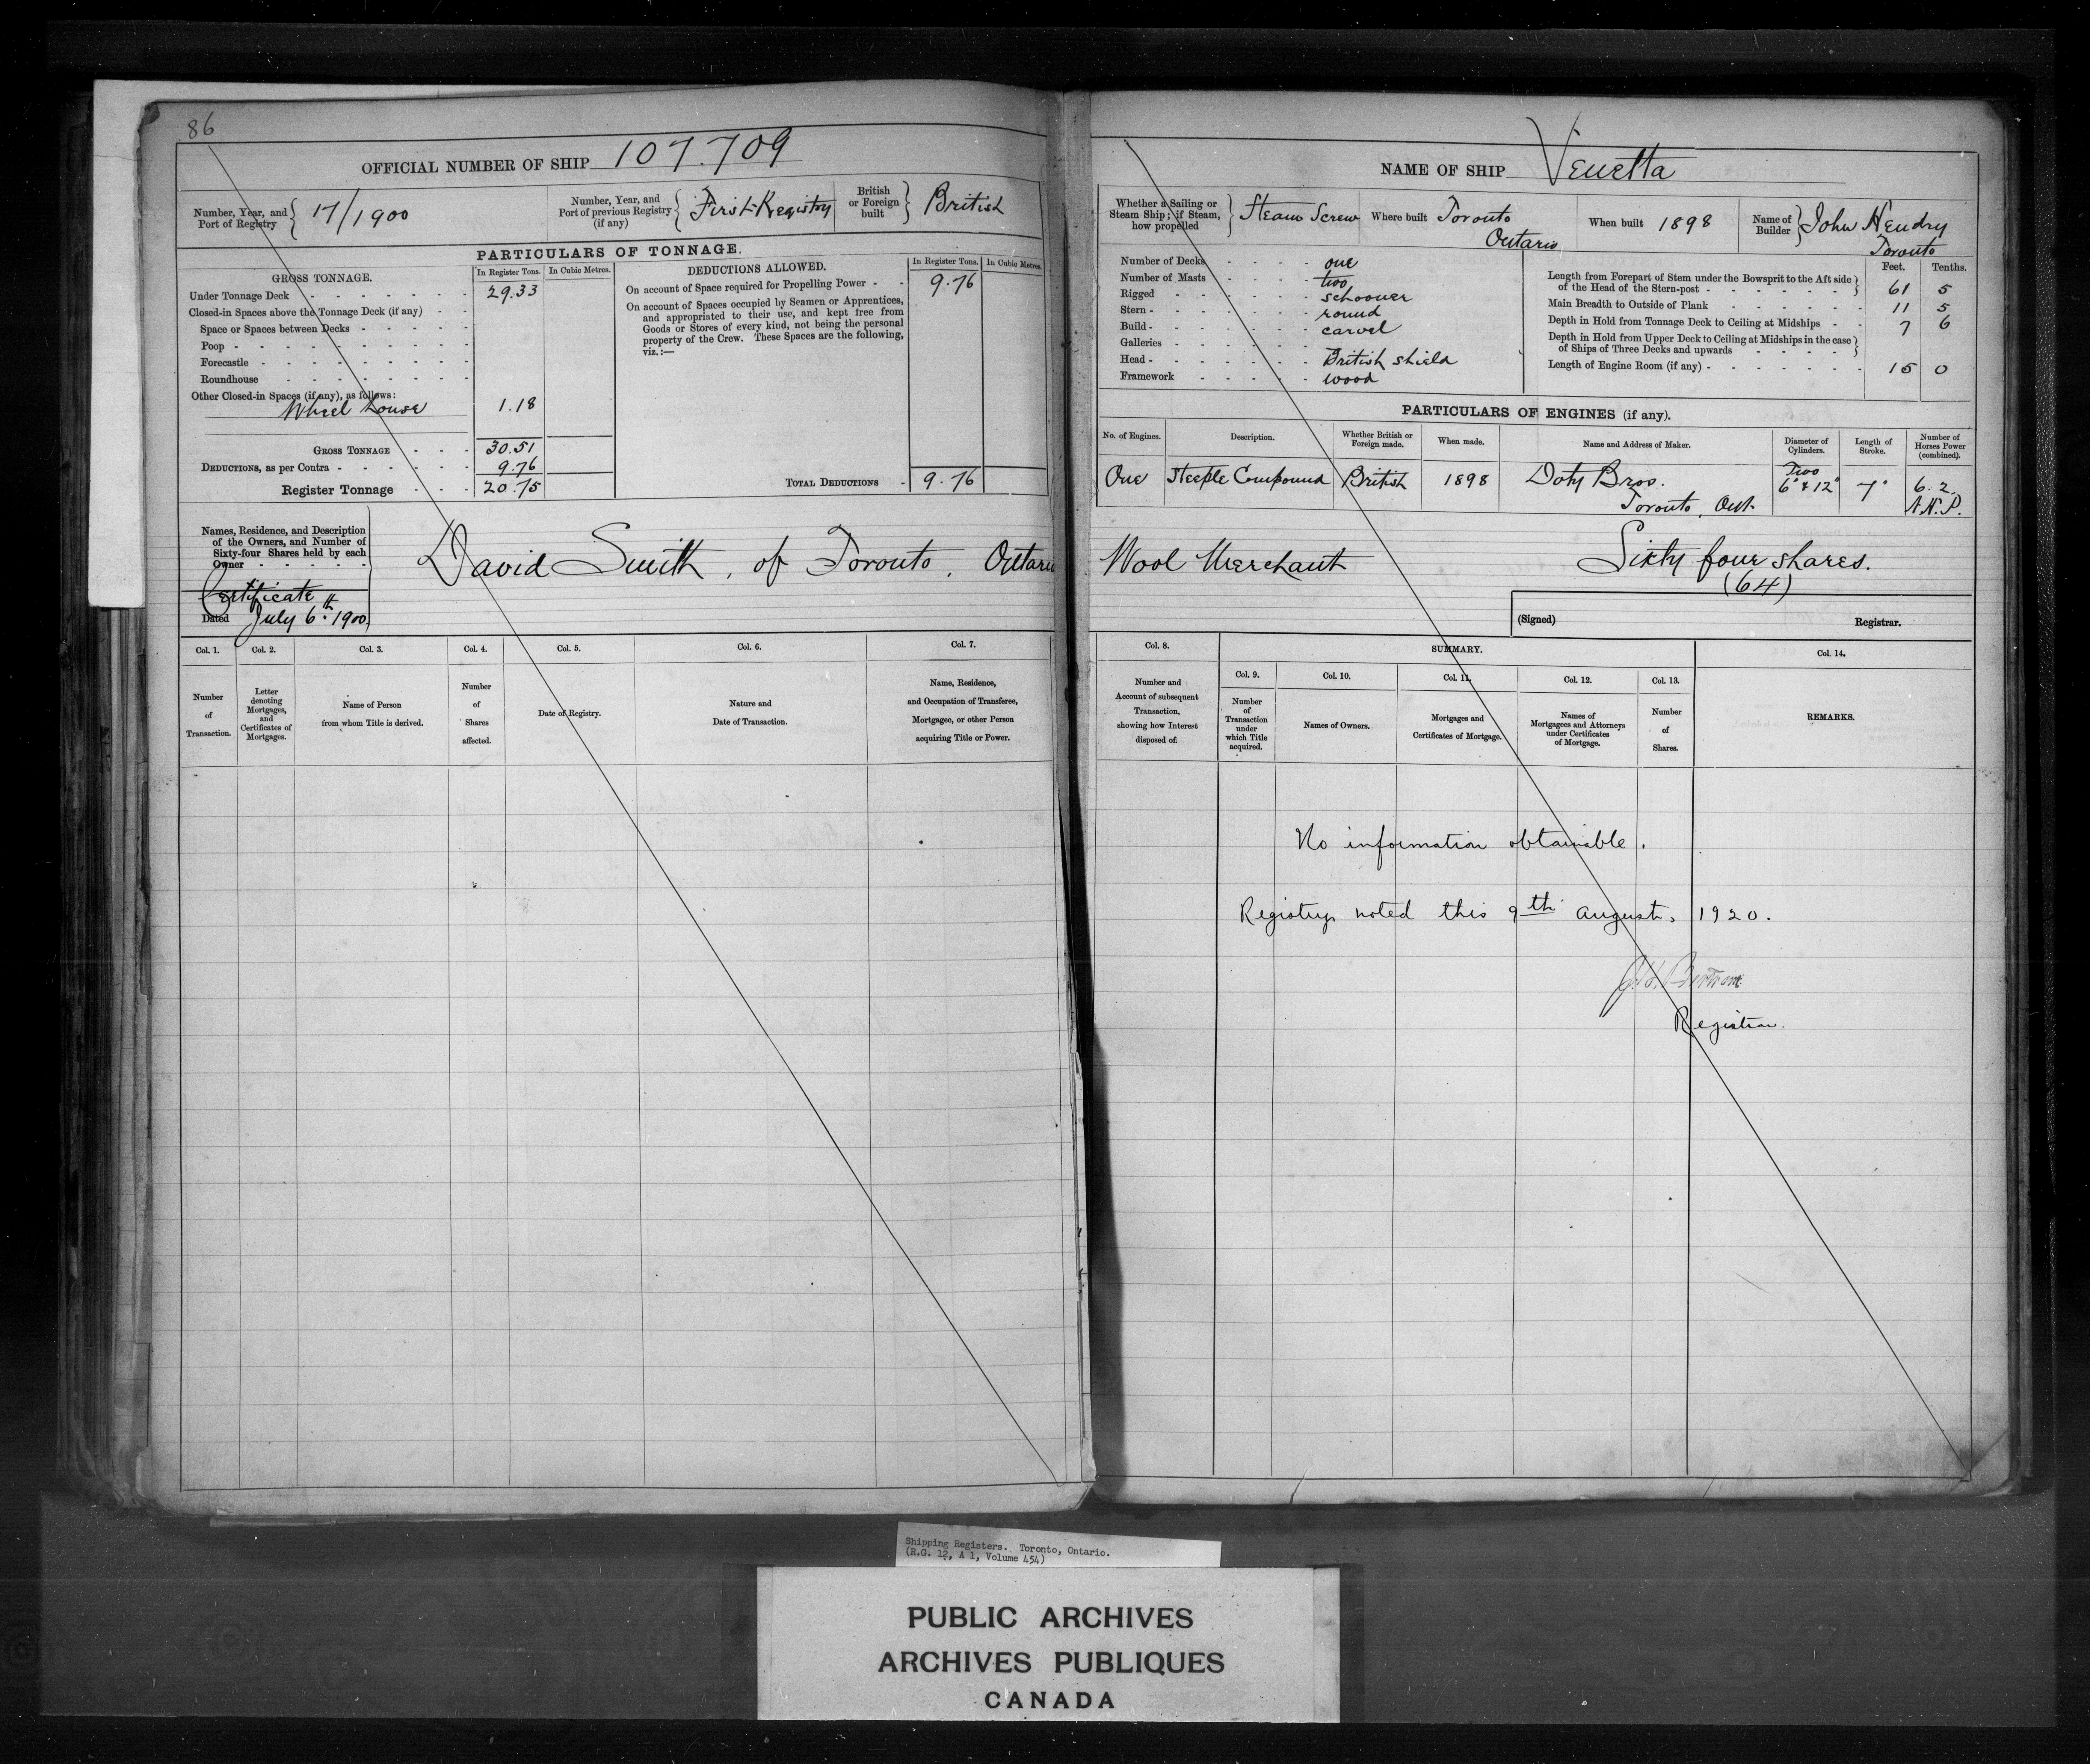 86
OFFICIAL NUMBER OF SHIP 107.709
Number, Year, and Port of Registry 17/1900
Number, Year, and Port of previous Registry (if any) First Registry
British or Foreign built British
PARTICULARS OF TONNAGE.
GROSS TONNAGE. In Register Tons. In Cubic Metres.
Under Tonnage Deck 29.33
Closed-in Spaces above the Tonnage Deck (if any)
Space or Spaces between Decks
Poop
Forecastle
Roundhouse
Other Closed-in Spaces (if any), as follows:
Wheel house 1.18
GROSS TONNAGE 30.51
DEDUCTIONS, as per Contra 9.76
Register Tonnage 20.75
DEDUCTIONS ALLOWED. In Register Tons. In Cubic Metres.
On account of Space required for Propelling Power 9.76
On account of Spaces occupied by Seamen or Apprentices,
and appropriated to their use, and kept free from
Goods or Stores of every kind, not being the personal
property of the Crew. These Spaces are the following,
viz.:—
TOTAL DEDUCTIONS 9.76
Names, Residence, and Description
of the Owners, and Number of
Sixty-four Shares held by each
Owner
Certificate
Dated July 6th 1900
David Smith, of Toronto, Ontario
Col. 1. Col. 2. Col. 3. Col. 4. Col. 5. Col. 6. Col. 7.
Number of Transaction.
Letter denoting Mortgages, and Certificates of Mortgages.
Name of Person from whom Title is derived.
Number of Shares affected.
Date of Registry.
Nature and Date of Transaction.
Name, Residence, and Occupation of Transferee, Mortgagee, or other Person acquiring Title or Power.
NAME OF SHIP Venetta
Whether a Sailing or Steam Ship; if Steam, how propelled Steam Screw
Where built Toronto Ontario
When built 1898
Name of Builder John Hendry Toronto
Number of Decks one
Number of Masts two
Rigged schooner
Stern round
Build carvel
Galleries
Head British shield
Framework wood
Feet. Tenths.
Length from Forepart of Stem under the Bowsprit to the Aft side
of the Head of the Stern-post 61 5
Main Breadth to Outside of Plank 11 5
Depth in Hold from Tonnage Deck to Ceiling at Midships 7 6
Depth in Hold from Upper Deck to Ceiling at Midships in the case
of Ships of Three Decks and upwards
Length of Engine Room (if any) 15 0
PARTICULARS OF ENGINES (if any).
No. of Engines. Description. Whether British or Foreign made. When made. Name and Address of Maker. Diameter of Cylinders. Length of Stroke. Number of Horses Power (combined).
One Steeple Compound British 1898 Doty Bros. Toronto, Ont. Two 6" & 12" 7" 6.2 N.H.P.
Wool Merchant Sixty four shares.
(64)
(Signed) Registrar.
Col. 8. SUMMARY. Col. 14.
Col. 9. Col. 10. Col. 11. Col. 12. Col. 13.
Number and Account of subsequent Transaction, showing how Interest disposed of.
Number of Transaction under which Title acquired.
Names of Owners.
Mortgages and Certificates of Mortgage.
Names of Mortgagees and Attorneys under Certificates of Mortgage.
Number of Shares.
REMARKS.
No information obtainable.
Registry noted this 9th August, 1920.
Bertram
Registrar.
Shipping Registers. Toronto, Ontario.
(R.G. 12, A 1, Volume 454)
PUBLIC ARCHIVES
ARCHIVES PUBLIQUES
CANADA